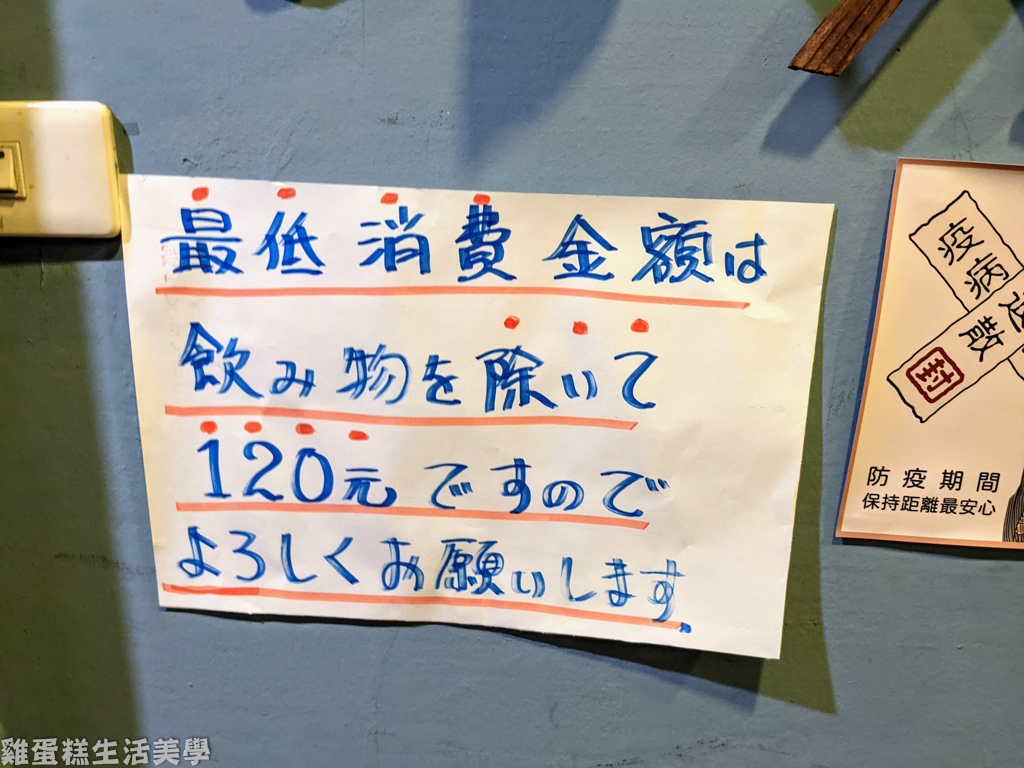 最低消費金額は
飲み物を除いて
120元ですので
よろしくお願いします.
疫病
散
封
防疫期間
保持距離最安心
雞蛋糕生活美學